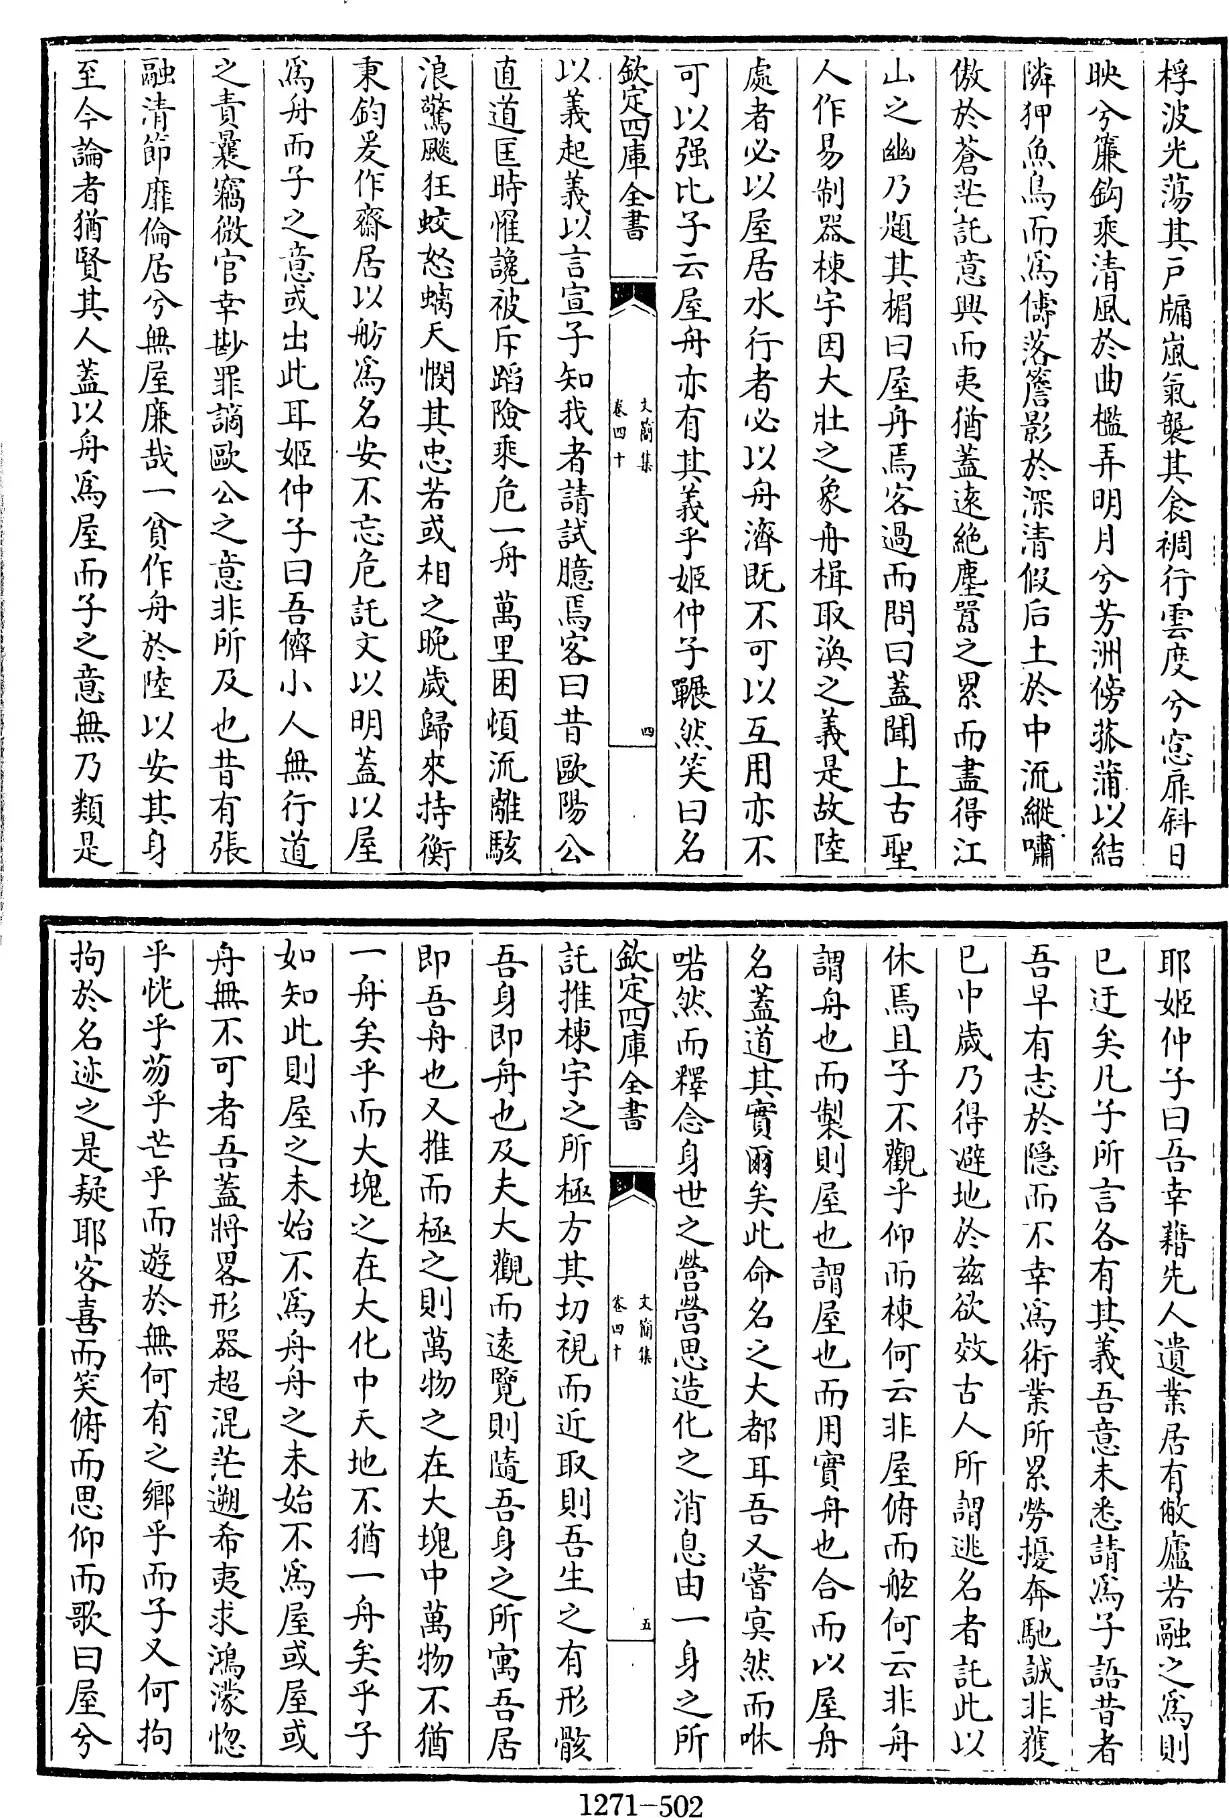 桴波光蕩其戸牖嵐氣襲其衾裯行雲度兮窓扉斜日
映兮簾鈎乘清風於曲檻弄明月兮芳洲傍菰蒲以結
隣狎魚鳥而為儔落簷影於深清假后土於中流縱嘯
傲於蒼茫託意興而夷猶蓋逺絶塵嚣之累而盡得江
山之幽乃題其楣曰屋舟焉客過而問曰蓋聞上古聖
人作易制器棟宇因大壯之象舟楫取渙之義是故陸
處者必以屋居水行者必以舟濟既不可以互用亦不
可以强比子云屋舟亦有其義乎姬仲子囅然笑曰名
欽定四庫全書
文簡集
卷四十
四
以義起義以言宣子知我者請試臆焉客曰昔歐陽公
直道匡時罹讒被斥蹈險乘危一舟萬里困頓流離駭
浪驚飈狂蛟怒螭天憫其忠若或相之晩歲歸來持衡
秉鈞爰作齋居以舫為名安不忘危託文以明蓋以屋
為舟而子之意或出此耳姬仲子曰吾儕小人無行道
之責曩竊微官幸尠罪謫歐公之意非所及也昔有張
融清節靡倫居兮無屋廉哉一貧作舟於陸以安其身
至今論者猶賢其人蓋以舟為屋而子之意無乃類是
耶姬仲子曰吾幸藉先人遺業居有敝廬若融之為則
已迂矣凡子所言各有其義吾意未悉請為子語昔者
吾早有志於隠而不幸為術業所累勞擾奔馳誠非獲
已中歲乃得避地於兹欲效古人所謂逃名者託此以
休焉且子不觀乎仰而棟何云非屋俯而舷何云非舟
謂舟也而製則屋也謂屋也而用實舟也合而以屋舟
名蓋道其實爾矣此命名之大都耳吾又嘗㝠然而咻
喏然而釋念身世之營營思造化之消息由一身之所
欽定四庫全書
文簡集
卷四十
五
託推棟宇之所極方其切視而近取則吾生之有形骸
吾身即舟也及夫大觀而逺覽則隨吾身之所寓吾居
即吾舟也又推而極之則萬物之在大塊中萬物不猶
一舟矣乎而大塊之在大化中天地不猶一舟矣乎子
如知此則屋之未始不為舟舟之未始不為屋或屋或
舟無不可者吾蓋將畧形器超混茫遡希夷求鴻濛惚
乎恍乎芴乎芒乎而遊於無何有之鄉乎而子又何拘
拘於名迹之是疑耶客喜而笑俯而思仰而歌曰屋兮
1271-502